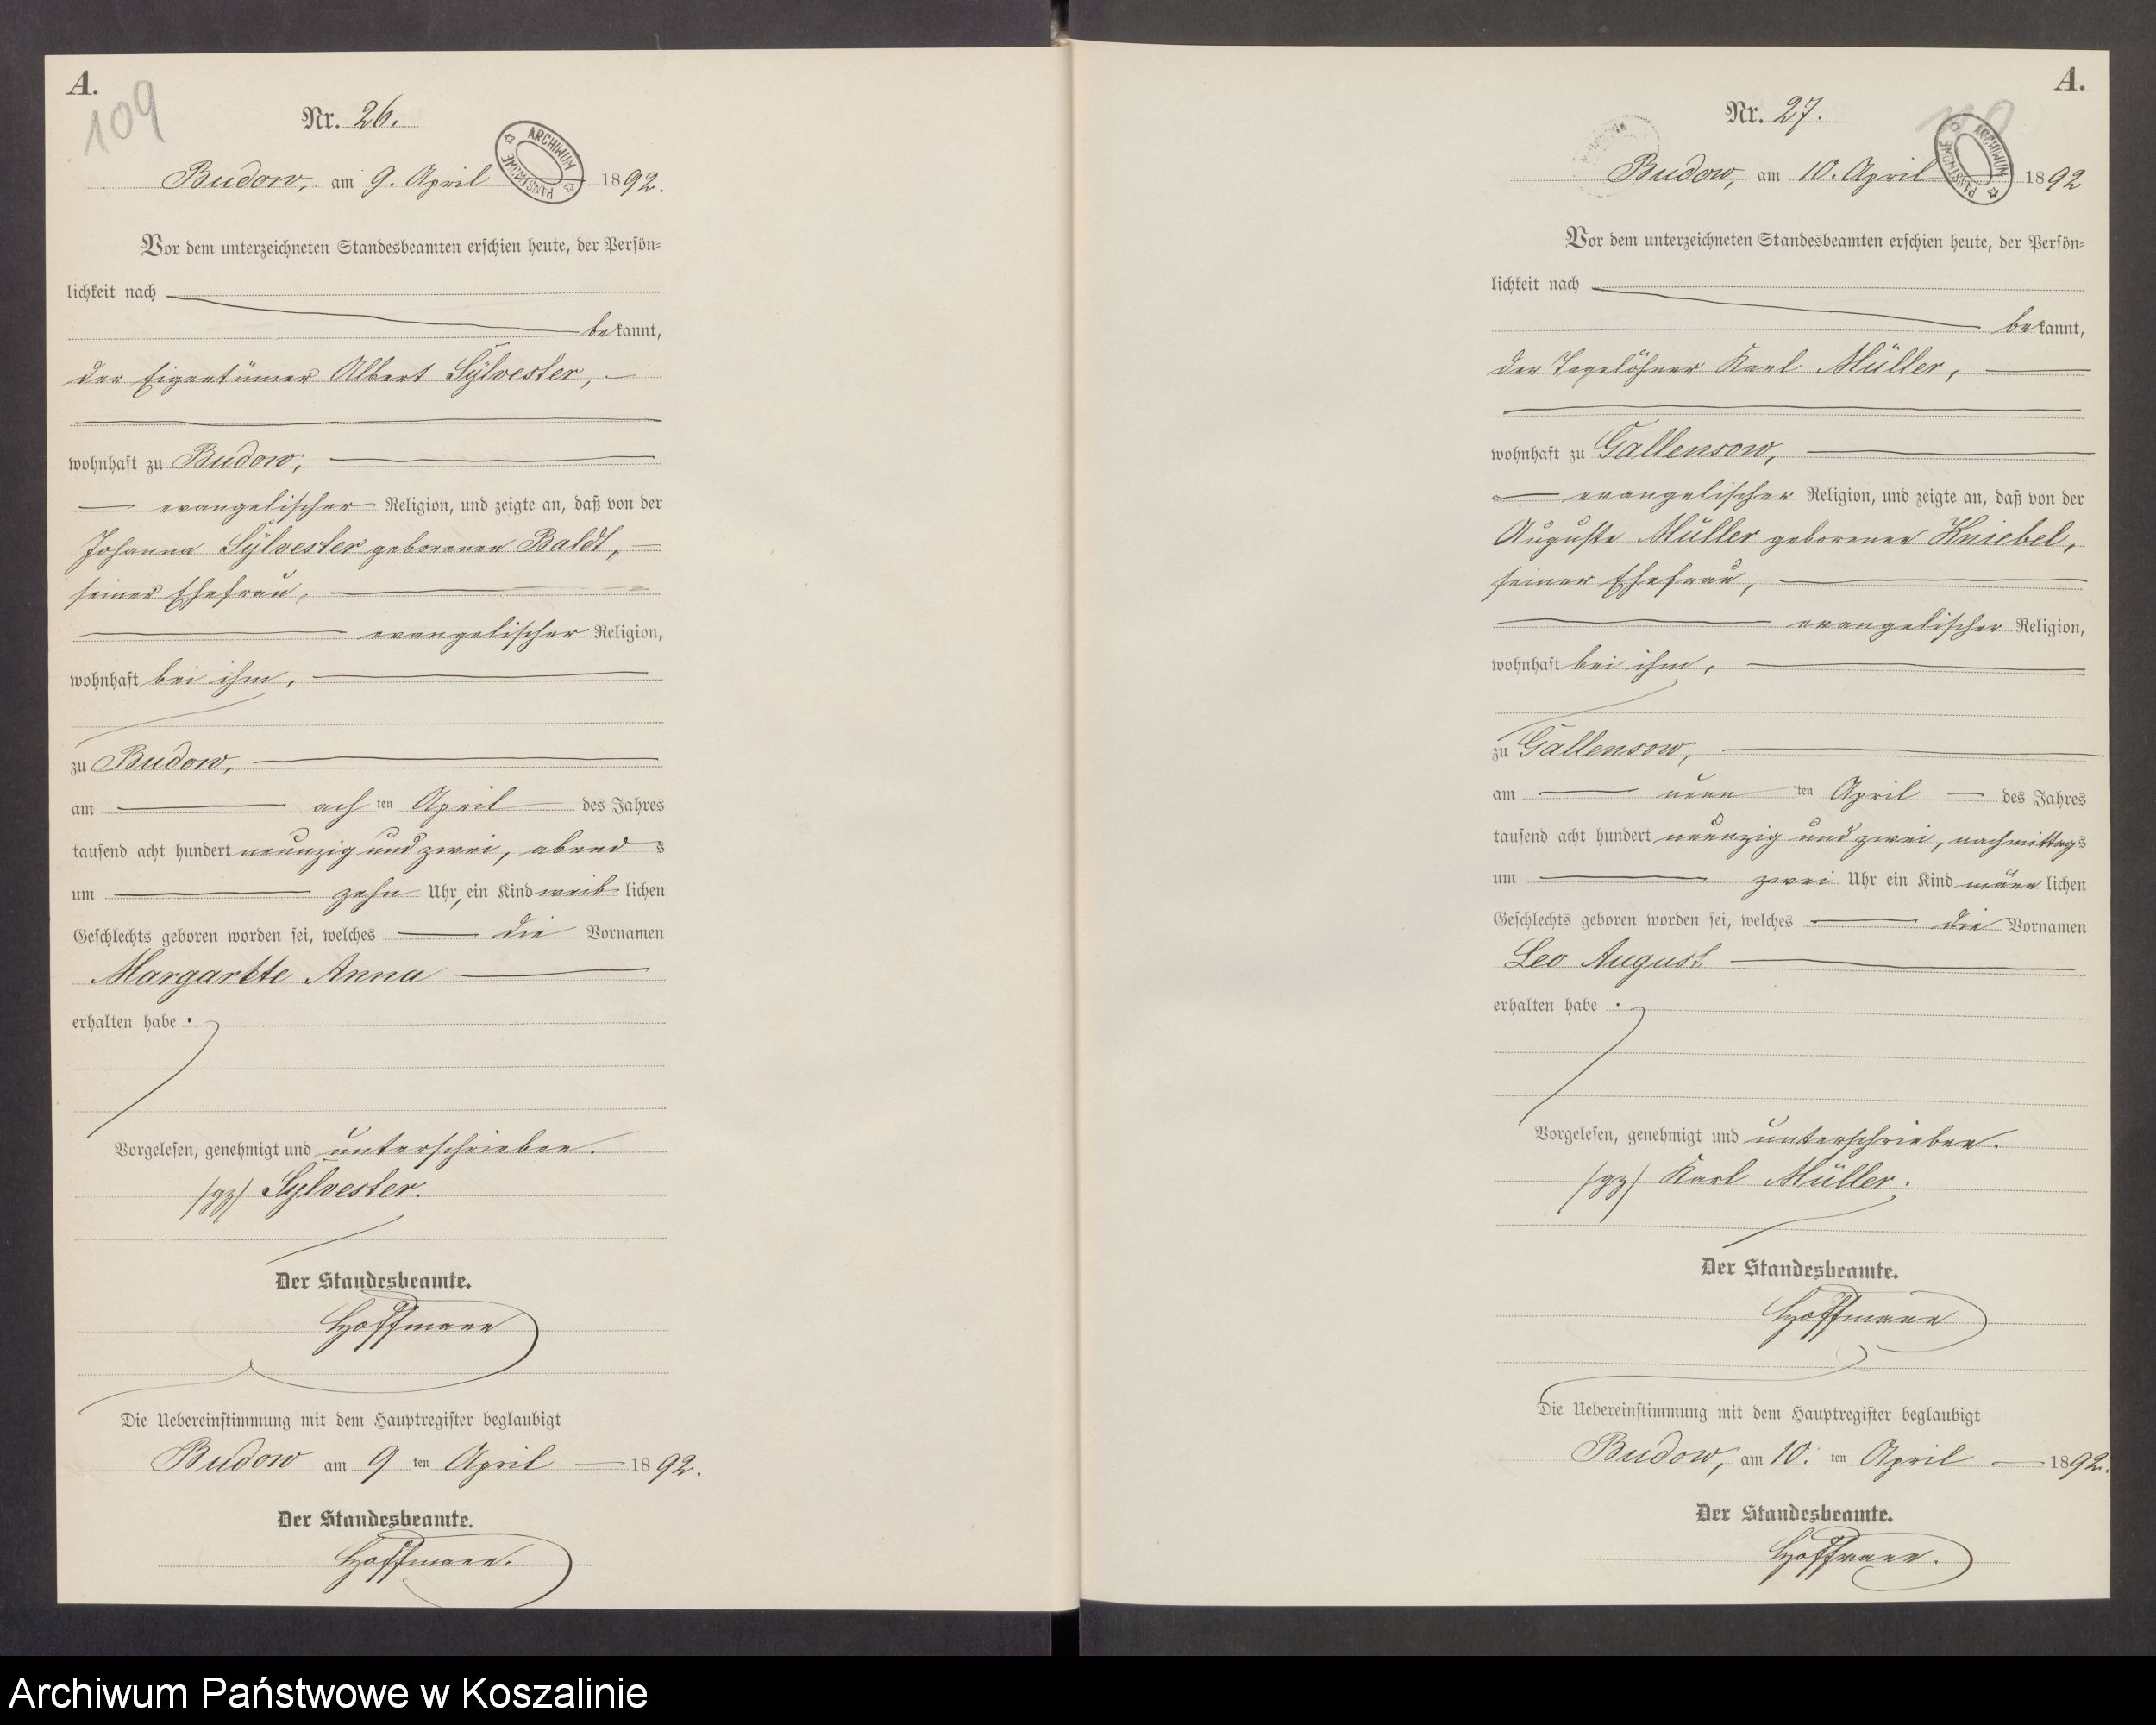 A.
109
Nr. 26.
ARCHIWUM PAŃSTWOWE
Budow, am 9. April 1892.
Vor dem unterzeichneten Standesbeamten erschien heute, der Persön=
lichkeit nach
bekannt,
der Eigentümer Albert Sylvester,
wohnhaft zu Budow,
evangelischer Religion, und zeigte an, daß von der
Johanna Sylvester geborenen Baldt,
seiner Ehefrau,
evangelischer Religion,
wohnhaft bei ihm,
zu Budow,
am achten April des Jahres
tausend acht hundert neunzig und zwei, abends
um zehn Uhr, ein Kind weiblichen
Geschlechts geboren worden sei, welches die Vornamen
Margarete Anna
erhalten habe.
Vorgelesen, genehmigt und unterschrieben.
/gz/ Sylvester.
Der Standesbeamte.
Hoffmann
Die Uebereinstimmung mit dem Hauptregister beglaubigt
Budow am 9ten April 1892.
Der Standesbeamte.
Hoffmann.
A.
Nr. 27.
ARCHIWUM PAŃSTWOWE
Budow, am 10. April 1892
Vor dem unterzeichneten Standesbeamten erschien heute, der Persön=
lichkeit nach
bekannt,
der Tagelöhner Karl Müller,
wohnhaft zu Gallensow,
evangelischer Religion, und zeigte an, daß von der
Auguste Müller geborenen Kniebel,
seiner Ehefrau,
evangelischer Religion,
wohnhaft bei ihm,
zu Gallensow,
am neunten April des Jahres
tausend acht hundert neunzig und zwei, nachmittags
um zwei Uhr ein Kind männlichen
Geschlechts geboren worden sei, welches die Vornamen
Leo August
erhalten habe.
Vorgelesen, genehmigt und unterschrieben.
/gz/ Karl Müller.
Der Standesbeamte.
Hoffmann
Die Uebereinstimmung mit dem Hauptregister beglaubigt
Budow, am 10.ten April 1892.
Der Standesbeamte.
Hoffmann.
Archiwum Państwowe w Koszalinie